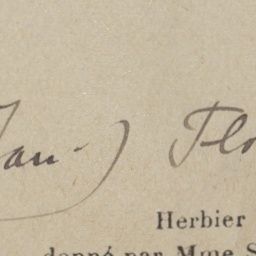 an.) Flo
Herbier
donné par Mme S